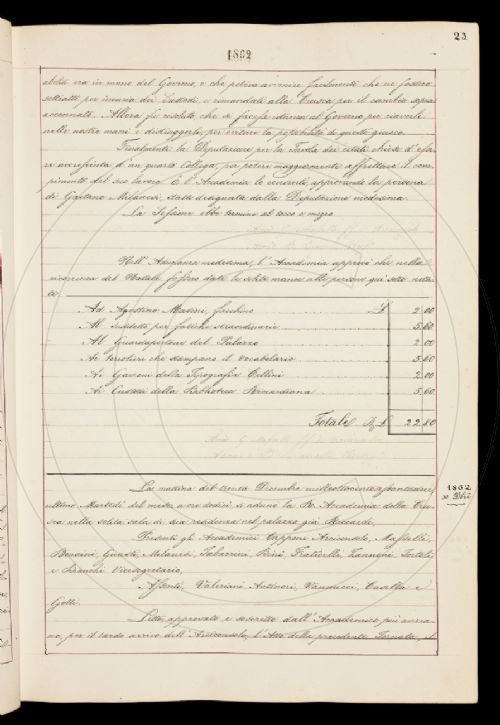 23
1862
abiti era in mano del Governo, e che poteva avvenire facilmente che ne fossero
sottratti per incuria dei Custodi, e rimandati alla Crusca per il cambio sopra
accennato. Allora fu risoluto che si facesse istanza al Governo per riaverli
nelle nostre mani e distruggerli, per evitare la possibilità di questo giuoco.
Finalmente la Deputazione per la Tavola dei citati chiese d'esse
re accresciuta d'un quarto Collega, per potere maggiormente affrettare il com
pimento del suo lavoro. E l'Accademia lo consentì approvando la persona
di Gaetano Milanesi, stata designata dalla Deputazione medesima.
La Sessione ebbe termine al tocco e mezzo.
Nell'Adunanza medesima, l'Accademia approvò che nella
ricorrenza del Natale fossero date le solite mance alle persone qui sotto nota
te:
Ad Agostino Masini, facchino £ 2.00
Al suddetto per fatiche straordinarie 5.60
Al Guardaportone del Palazzo 2.00
Ai torcolieri che stampano il Vocabolario 5.60
Ai Garzoni della Tipografia Cellini 2.00
Ai Custodi della Biblioteca Riccardiana 5.60
Totale £ 22.80
1862
30 Dbre
La mattina del trenta Dicembre milleottocentosessantadue
ultimo Martedì del mese, a ore dodici, si aduna la R. Accademia della Cru
sca nella solita sala di sua residenza nel palazzo già Riccardi.
Presenti gli Accademici Capponi Arciconsolo, Maffei,
Bencini, Giusti, Milanesi, Tabarrini, Bini, Fraticelli, Zannoni, Tortoli
e Bianchi Vicesegretario.
Assenti, Valeriani, Antinori, Vannucci, Casella e
Gotti.
Letto, approvato e soscritto dall'Accademico più anzia
no, per il tardo arrivo dell'Arciconsolo, l'Atto della precedente Tornata, il